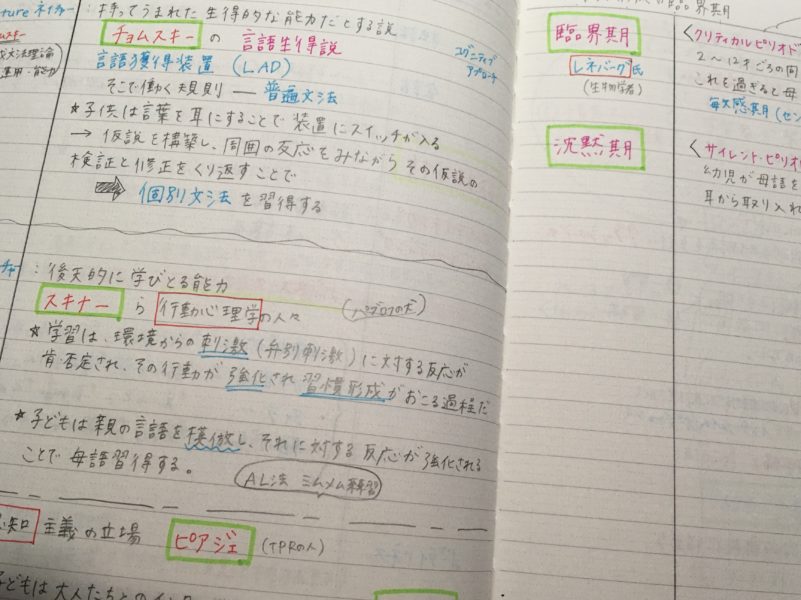 ture ネイチャー
: 持ってうまれた 生得的な能力だとする説
チョムスキー の 言語生得説
言語獲得装置 (LAD)
コグニティブ
アプローチ
そこで働く規則 ― 普遍文法
文法理論
運用・能力
★子供は言葉を耳にすることで 装置にスイッチが入る
→ 仮説を構築し、周囲の反応をみながら その仮説の
検証と修正をくり返すことで
⇒ 個別文法 を習得する
: 後天的に 学びとる能力
スキナー ら 行動心理学の人々 (パブロフの犬)
★学習は、環境からの刺激(弁別刺激)に対する反応が
肯・否定され、その行動が 強化され 習慣形成がおこる過程だ
★子どもは親の言語を模倣し、それに対する反応が強化される
ことで 母語習得する。
AL法 ミムメム練習
知 主義の立場 ピアジェ (TPRの人)
子どもは大人たちとの
の臨界期
臨界期
レネバーグ氏
(生物学者)
<クリティカルピリオド
2～12才ごろの
これを過ぎると母
敏感期(セン
沈黙期
<サイレント・ピリオ
幼児が母語を
耳から取り入れ